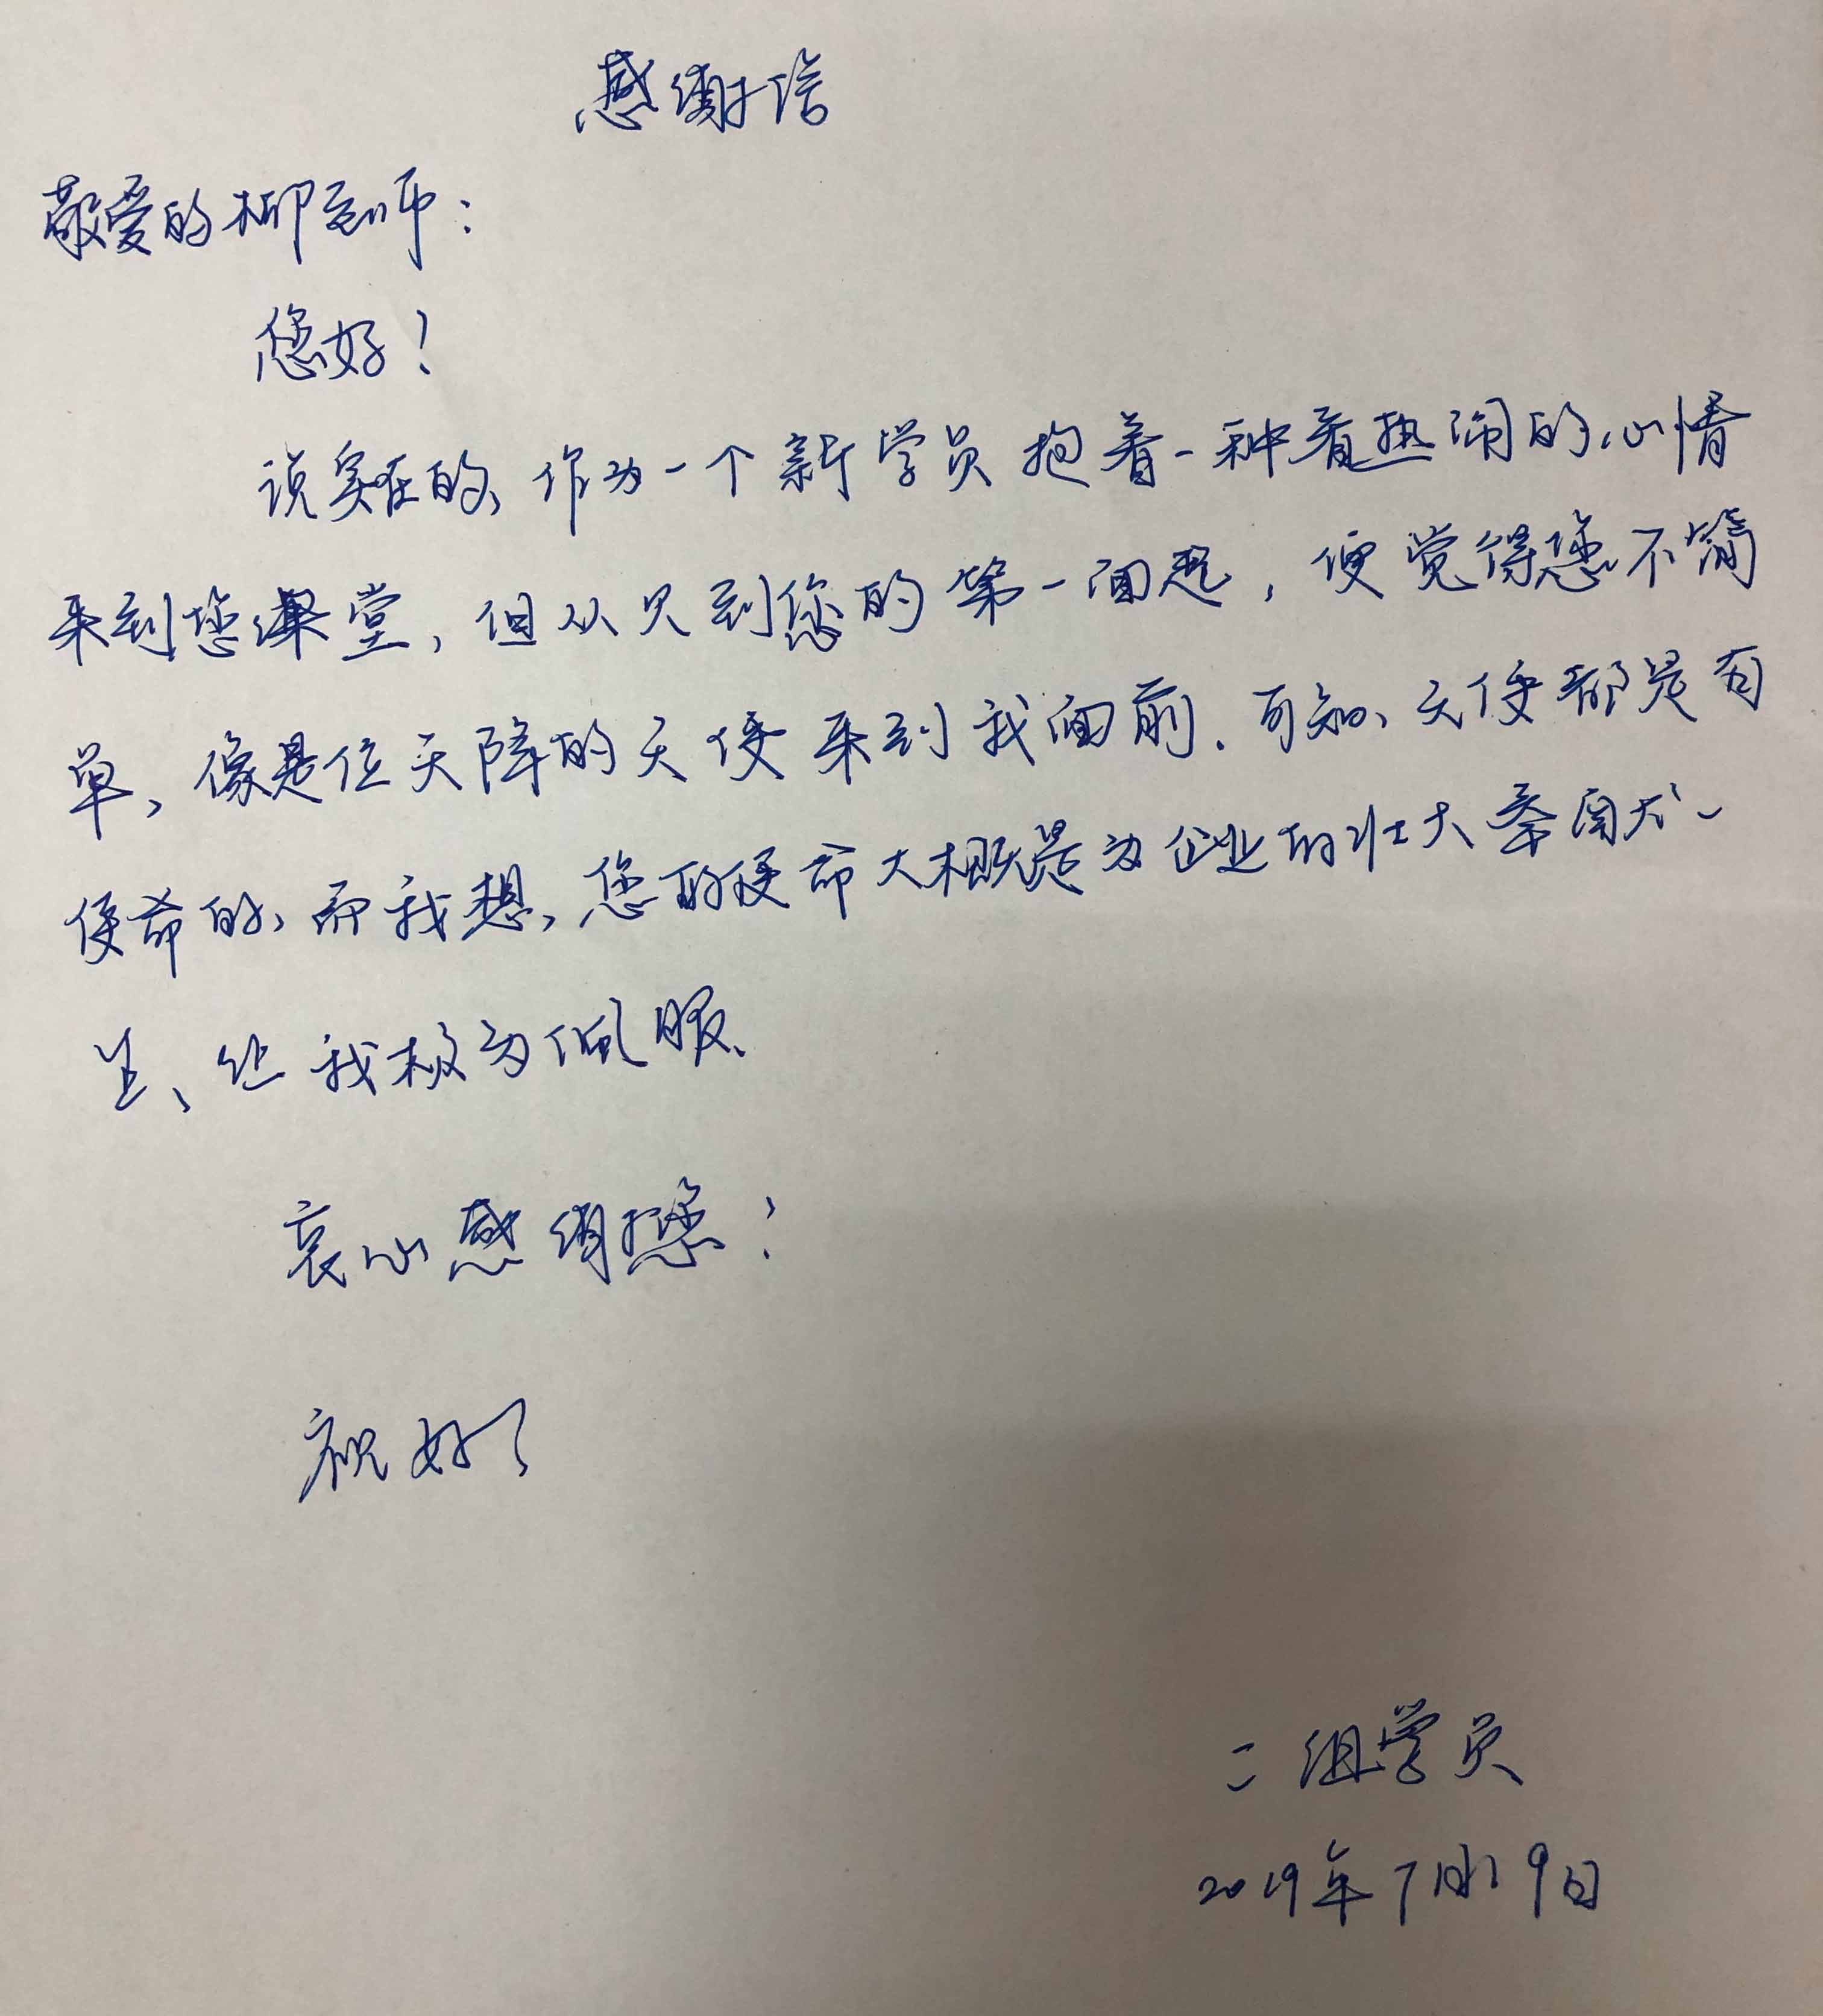 感谢信
敬爱的柳老师：
您好！
说实在的、作为一个新学员抱着一种看热闹的心情
来到您课堂，但从见到您的第一面起，便觉得您不简
单，像是位天降的天使来到我面前.可知、天使都是有
使命的，而我想，您的使命大概是为企业的壮大奉献一
生、让我极为佩服、
衷心感谢您！
祝好！
二组学员
2019年7月19日